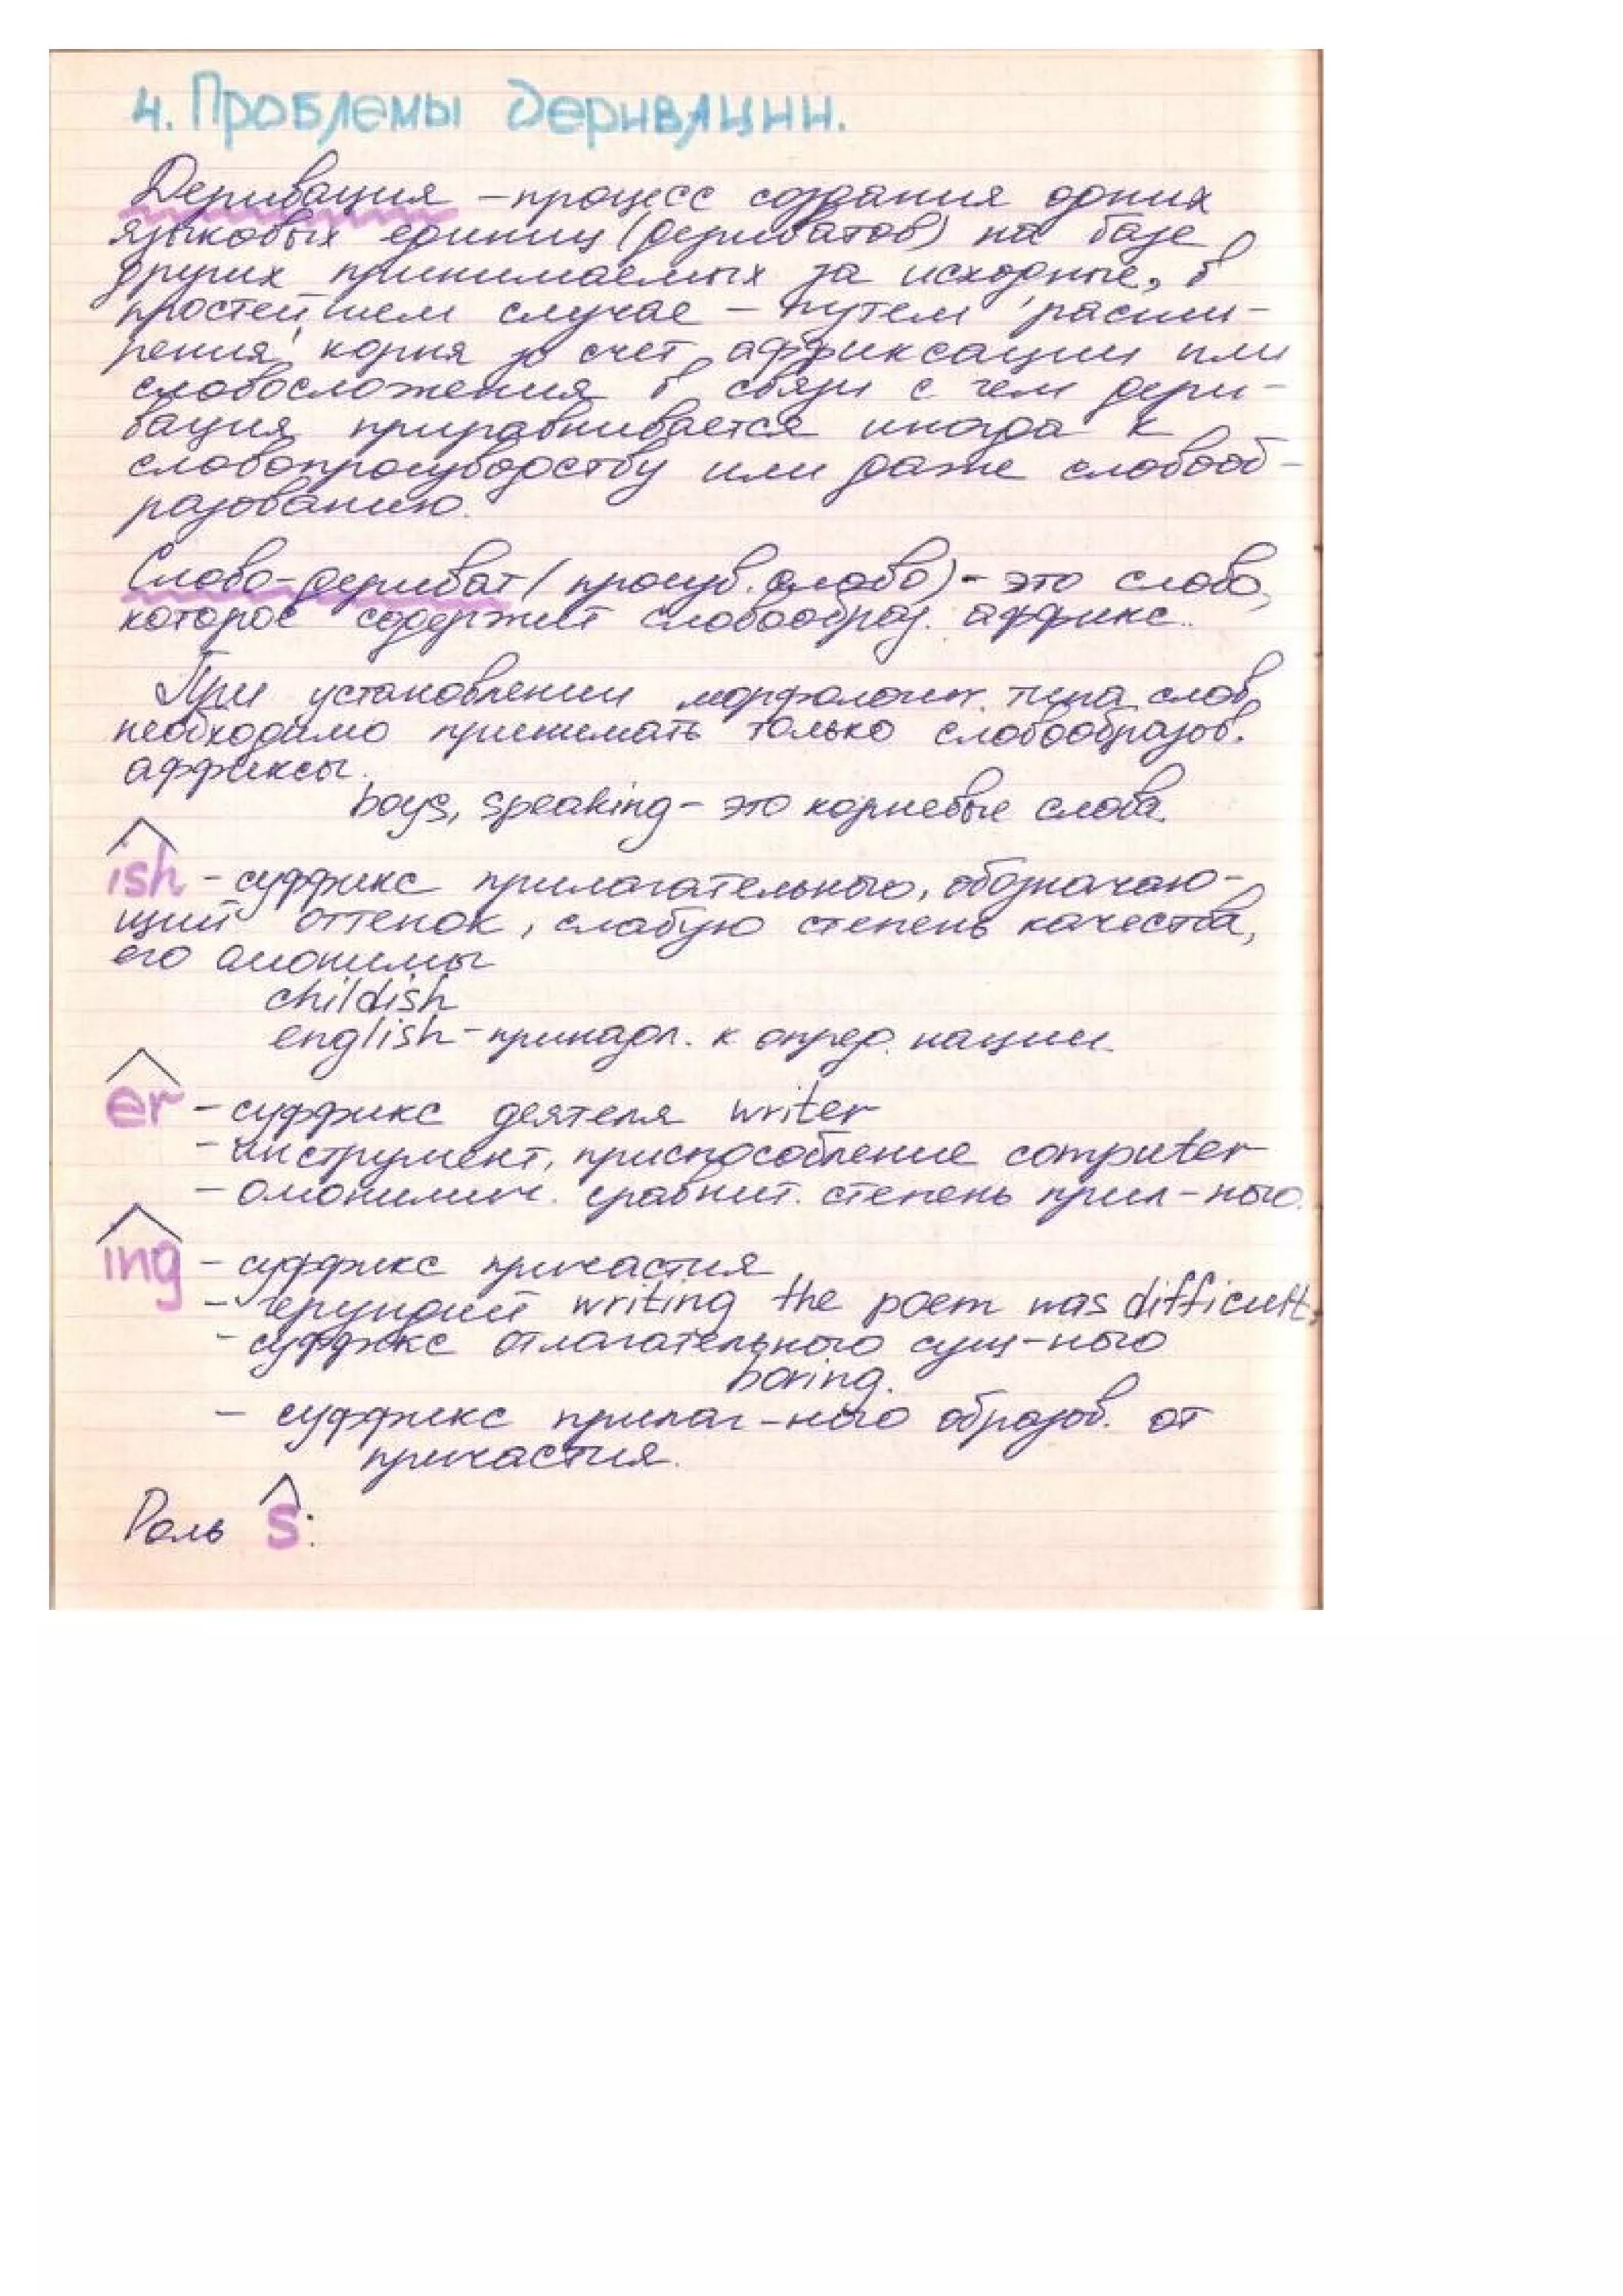 4. Проблемы деривации.
Деривация – процесс создания одних
языковых единиц (дериватов) на базе
других принимаемых за исходные, в
простейшем случае – путем 'расши-
рения' корня за счет аффиксации или
словосложения в связи с чем дери-
вация приравнивается иногда к
словопроизводству или даже словооб-
разованию.
Слово-дериват (произв. слово) - это слово,
которое содержит словообраз. аффикс.
При установлении морфологич. типа слов
необходимо принимать только словообразов.
аффиксы.
boys, speaking – это корневые слова.
ish – суффикс прилагательного, обозначаю-
щий оттенок, слабую степень качества,
его омонимы
childish
english – принадл. к опред. нации.
er – суффикс деятеля writer
– инструмент, приспособление computer
– омонимич. сравнит. степень прил-ного.
ing – суффикс причастия
– герундий writing the poem was difficult,
– суффикс отглагательного сущ-ного
boring.
– суффикс прилаг-ного образов. от
причастия.
Роль s: